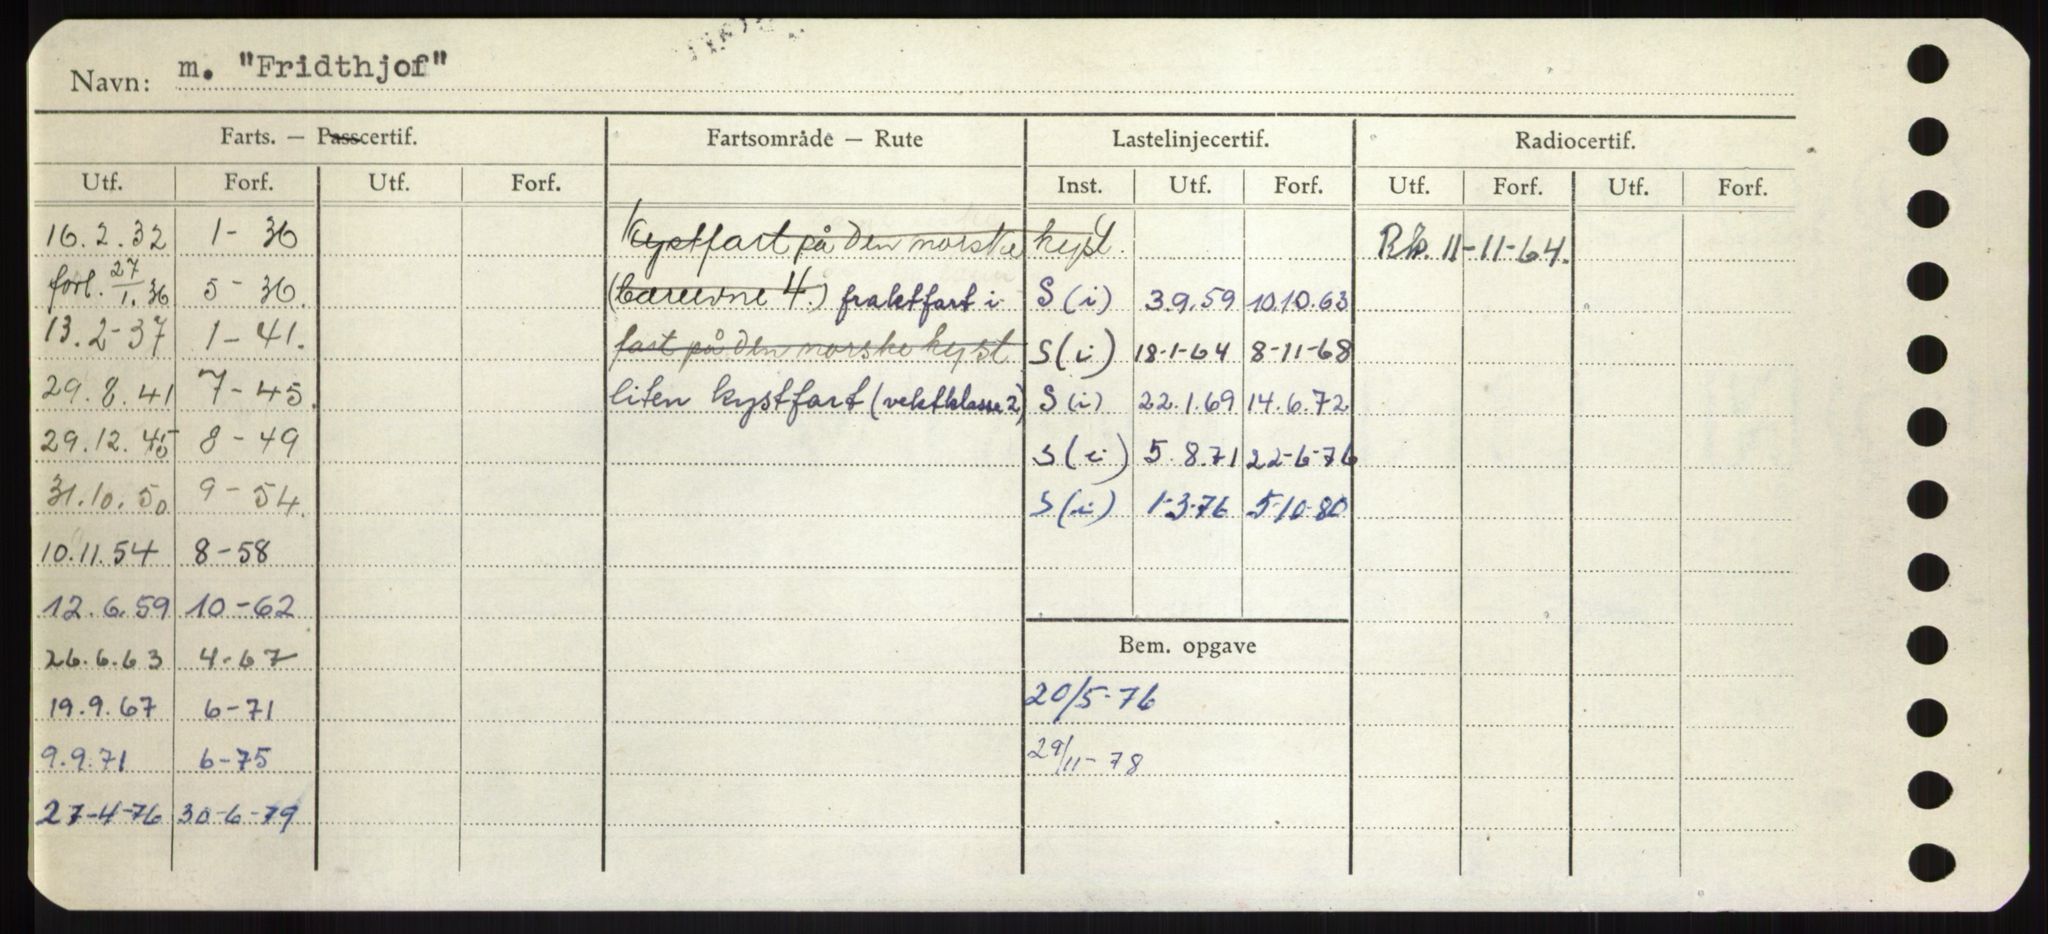 Navn: m. "Fridthjof"
Farts. — Passcertif. Fartsområde — Rute Lastelinjecertif. Radiocertif.
Utf. Forf. Utf. Forf. Inst. Utf. Forf. Utf. Forf. Utf. Forf.
16.2.32 1-36 Kystfart på den norske kyst. Rts. 11-11-64.
forl. 27/1.36 5-36. (bæreevne 4.) fraktfart i S (i) 3.9.59 10.10.63
13.2-37 1-41. fart på den norske kyst S (i) 18-1-64 8-11-68
29.8.41 7-45. liten kystfart (vektklasse 2) S (i) 22.1.69 14.6.72
29.12.45 8-49 S (i) 5.8.71 22-6-76
31.10.50 9-54. S (i) 1-3-76 5-10-80
10.11.54 8-58
12.6.59 10-62
26.6.63 4-67 Bem. opgave
19.9.67 6-71 20/5-76
9.9.71 6-75 29/11-78
27-4-76 30-6-79